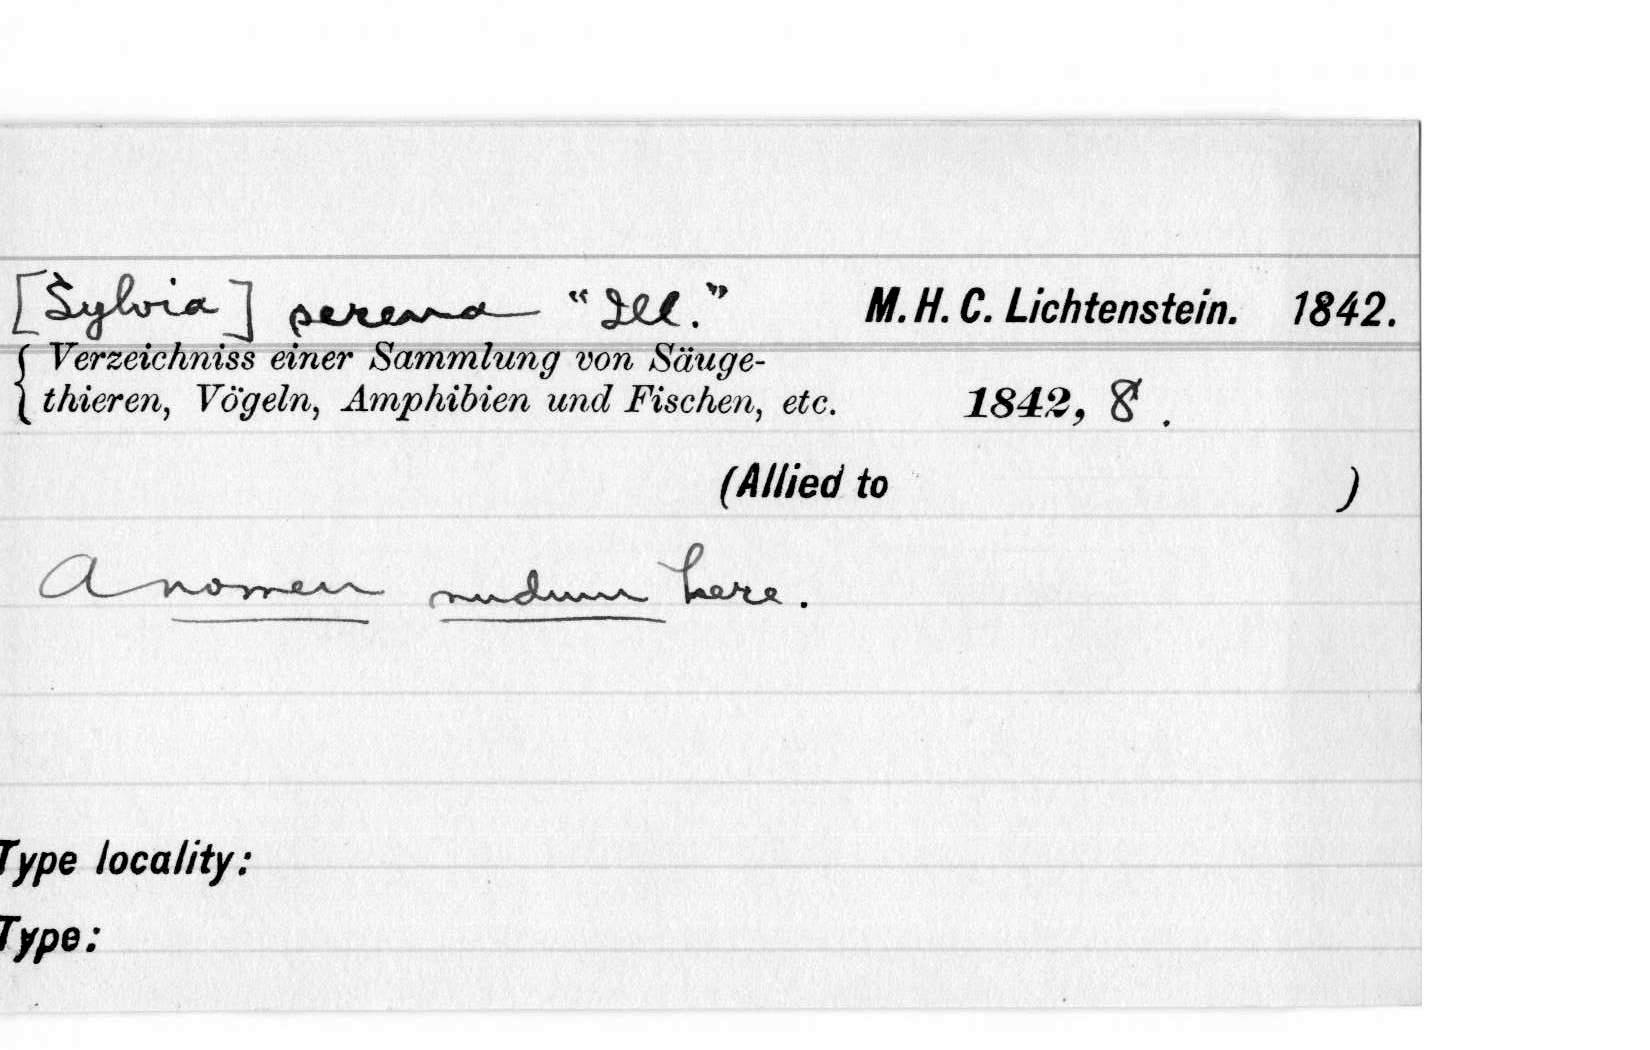 [Sylvia] serena “Ill.” M. H. C. Lichtenstein. 1842.
Verzeichniss einer Sammlung von Säuge-
thieren, Vögeln, Amphibien und Fischen, etc. 1842, 8.
(Allied to )
A nomen nudum here.
Type locality:
Type: